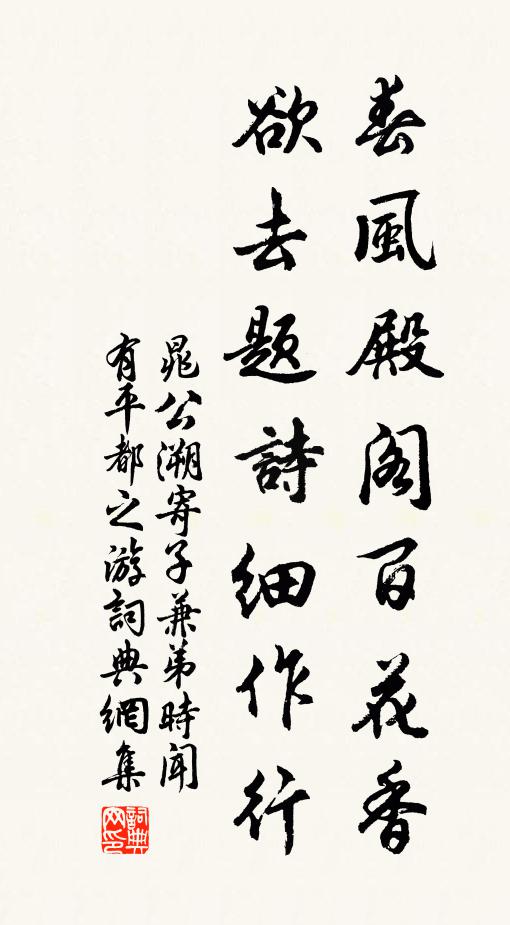 春風殿阁百花香
欲去题詩細作行
晁公溯寄子兼弟時聞
有平都之游詞典網集
詞典網印